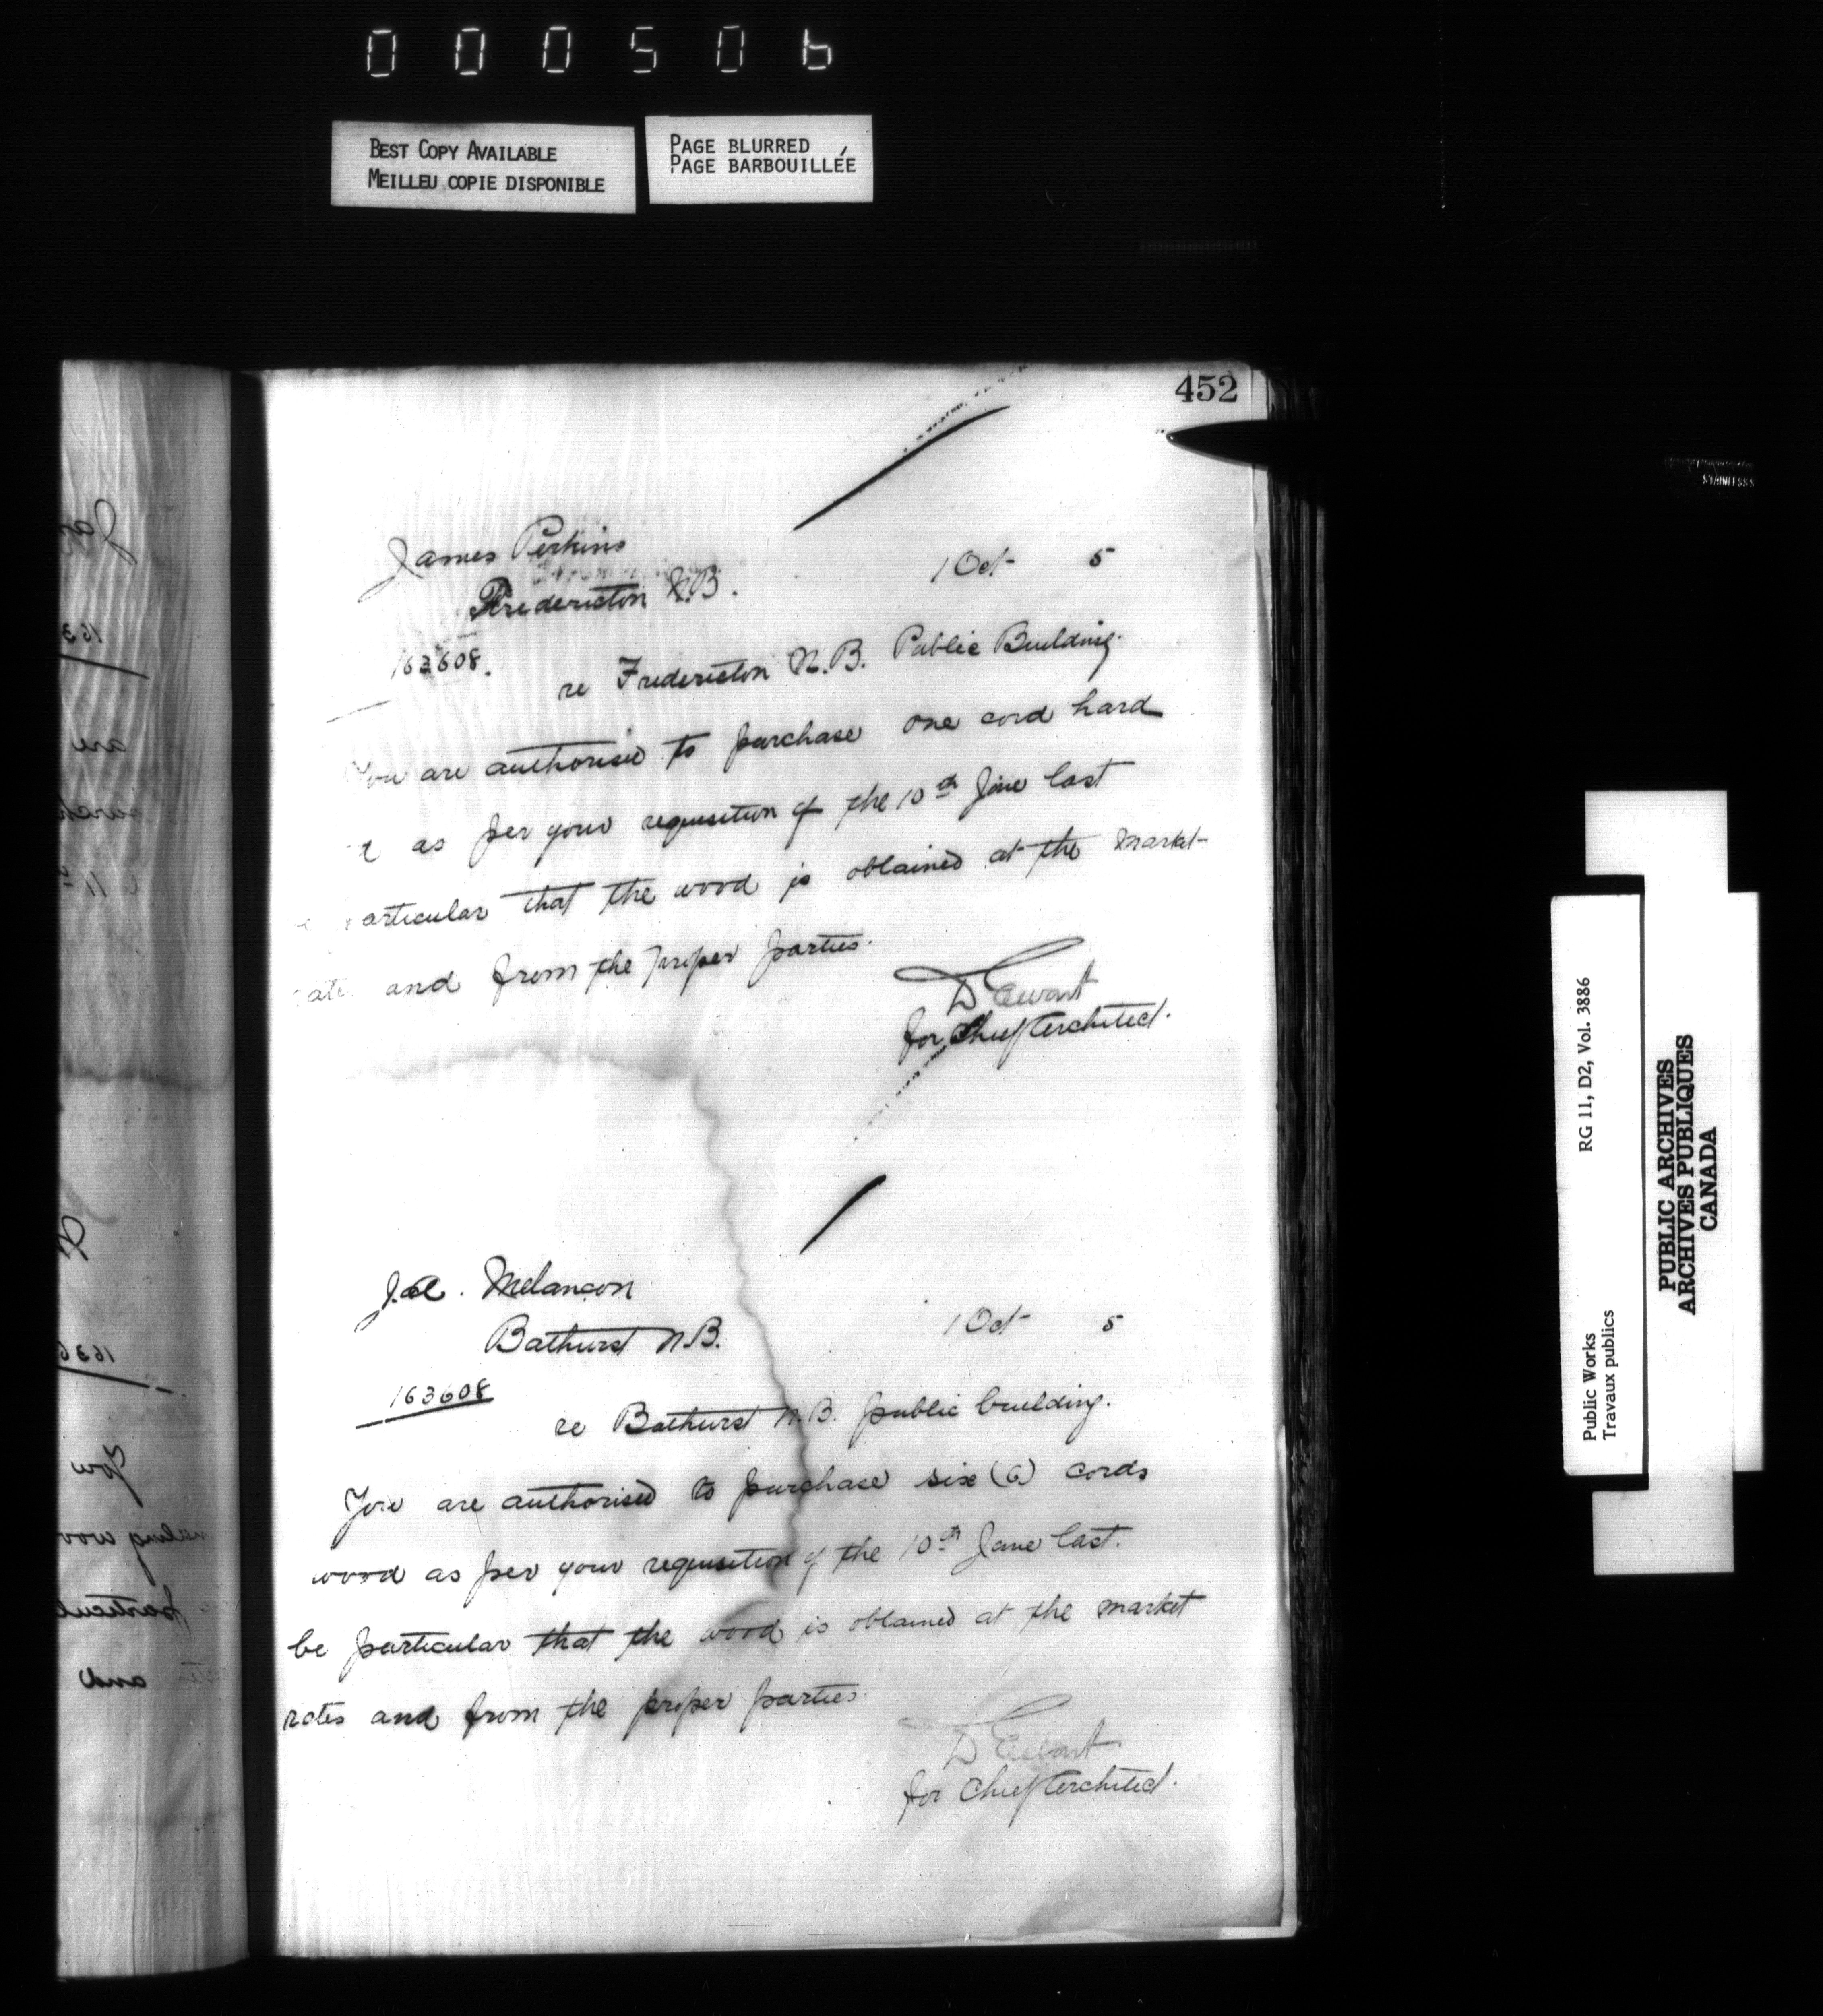 000506
BEST COPY AVAILABLE
MEILLEU COPIE DISPONIBLE
PAGE BLURRED
PAGE BARBOUILLÉE
452
James Perkins
Fredericton N.B.
1 Oct 5
163608.
re Fredericton N.B. Public Building.
You are authorised to purchase one cord hard
as per your requisition of the 10th June last
articular that the wood is obtained at the market
and from the proper parties.
D Ewart
for Chief Architect.
Melancon
Bathurst N.B.
1 Oct 5
163608
re Bathurst N.B. public building.
You are authorised to purchase six (6) cords
wood as per your requisition of the 10th June last.
be particular that the wood is obtained at the market
rates and from the proper parties.
D Ewart
for Chief Architect.
Public Works
Travaux publics
RG 11, D2, Vol. 3886
PUBLIC ARCHIVES
ARCHIVES PUBLIQUES
CANADA
STAINLESS